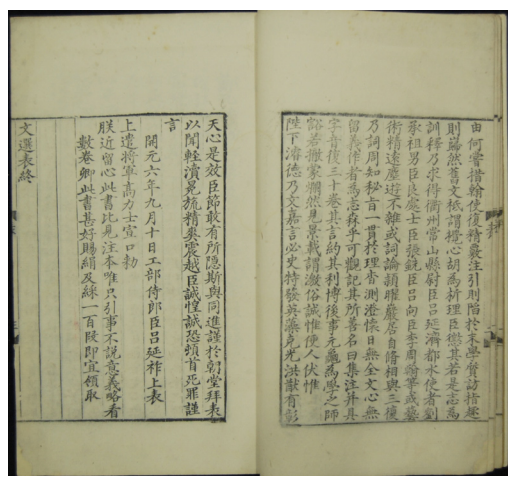 由何嘗措翰使復精覈注引則陷於末學質訪指趣
則巋然舊文秖謂攪心胡為析理臣懲其若是志為
訓釋乃求得衢州常山縣尉臣呂延濟都水使者劉
承祖男臣良處士臣張銑臣呂向臣李周翰等或藝
術精遠塵遊不雜或詞論頴曜巖居自脩相與三復
乃詞周知秘旨一貫於理杳測澄懷目無全文心無
留義作者為志森乎可觀記其所善名曰集注并具
字音復三十卷其言約其利博後事元龜為學之師
豁若撤蒙爛然見景載謂激俗誠惟便人伏惟
陛下濬德乃文嘉言必史特發英藻克光洪猷有彰
天心是效臣節敢有所隱斯與同進謹於朝堂拜表
以聞輕瀆冕旒精爽震越臣誠惶誠恐頓首死罪謹
言
開元六年九月十日工部侍郎臣呂延祚上表
上遣將軍高力士宣口勑
朕近留心此書比見注本唯只引事不說意義略看
數卷卿此書甚好賜絹及綵一百段即宜領取
文選表終